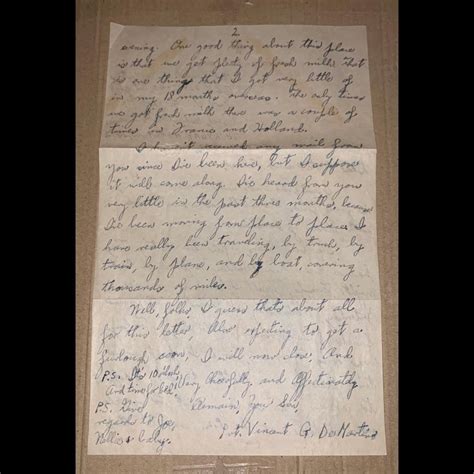 2
evening. One good thing about this place
is that we get plenty of fresh milk. That
is one thing that I got very little of
in my 18 months overseas. The only times
we got fresh milk there was a couple of
times in France and Holland.
I haven't received any mail from
you since I've been here, but I suppose
it will come along. I've heard from you
very little in the past three months, because
I've been moving from place to place. I
have really been traveling, by truck, by
train, by plane, and by boat, covering
thousands of miles.
Well, folks, I guess that's about all
for this letter. Am expecting to get a
furlough soon. I will now close. And
P.S. It's 10 o'clock
And time for bed. Very Cheerfully and Affectionately
P.S. Give Remain, Your Son,
regards to Joe, Pvt. Vincent G. DeMartino
Nellie & baby.